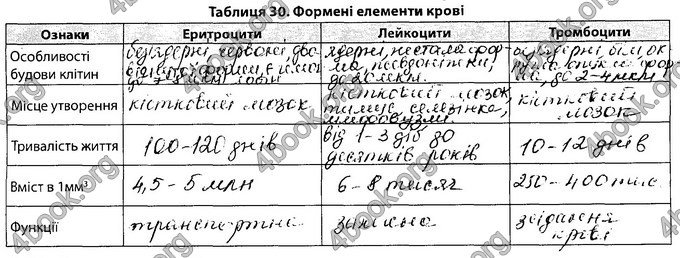 Таблиця 30. Формені елементи крові
Ознаки Еритроцити Лейкоцити Тромбоцити
Особливості будови клітин
без'ядерні, червоні,
ядерні, нестала форма, псевдоніжки, до 20 мкм
до 2-4 мкм
Місце утворення
кістковий мозок
кістковий мозок, тимус, селезінка, лімфовузли
кістковий мозок
Тривалість життя
100-120 днів
від 1-3 діб до десятків років
10-12 днів
Вміст в 1мм³
4,5-5 млн
6-8 тисяч
250-400 тис.
Функції
транспортна
захисна
зсідання крові
4book.org